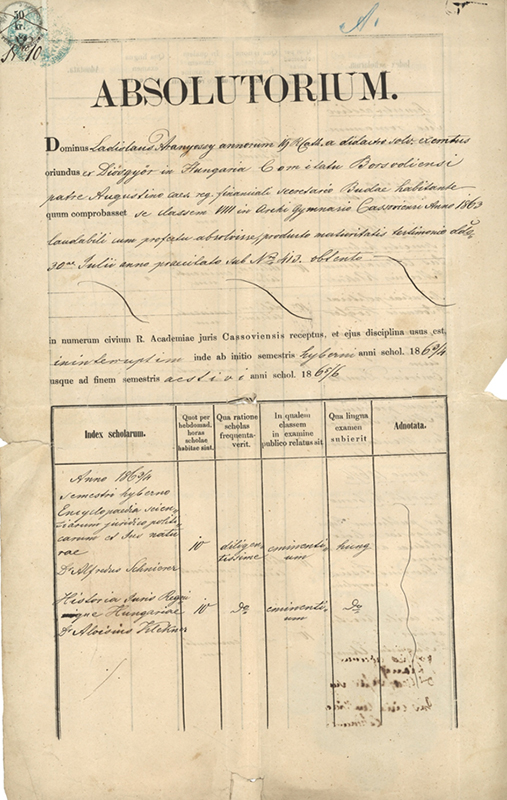 50
A.
ABSOLUTORIUM.
Dominus Ladislaus Aranyossy annorum 19 R. Cath. a didactro solv. exemtus
oriundus ex Diósgyőr in Hungaria Comitatu Borsodiensi
patre Augustino caes. reg. financiali secretario Budae habitante
quum comprobasset se classem VIII in Archi Gymnasio Cassoviensi Anno 1863
laudabili cum profectu absolvisse, producto maturitatis testimonio ddto
30ma Julii anno praecitato sub No 413. obtento
in numerum civium R. Academiae juris Cassoviensis receptus, et ejus disciplina usus est,
ininterruptim inde ab initio semestris hyberni anni schol. 1863/4
usque ad finem semestris aestivi anni schol. 1865/6
Index scholarum.
Quot per hebdomad. horas scholae habitae sint.
Qua ratione scholas frequentaverit.
In qualem classem in examine publico relatus sit
Qua lingua examen subierit
Adnotata.
Anno 1863/4
semestri hyberno
Encyclopaedia scien-
tiarum juridico politi-
carum et Jus natu-
rae
10
diligen-
tissime
eminenti-
um
hung
Dr Alfredus Schnierer
Historia Juris Regni
que Hungariae
10
do
eminenti-
um
do
Dr Aloisius